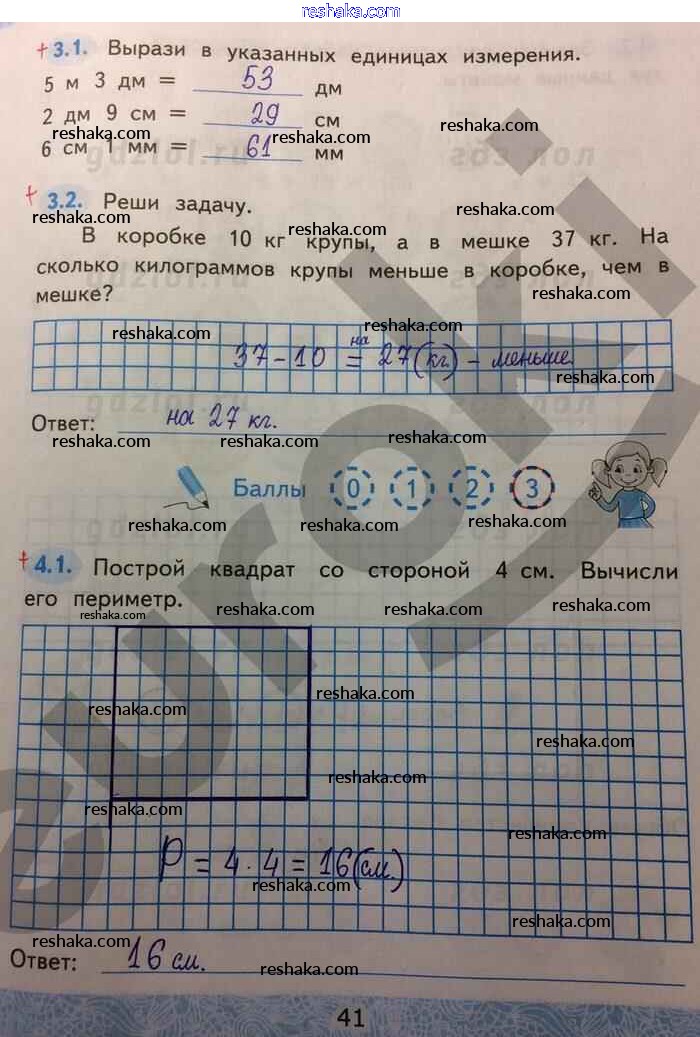 reshaka.com
+ 3.1. Вырази в указанных единицах измерения.
5 м 3 дм = 53 дм
2 дм 9 см = 29 см
reshaka.com reshaka.com
6 см 1 мм = 61 мм
reshaka.com reshaka.com
+ 3.2. Реши задачу.
reshaka.com reshaka.com
reshaka.com
В коробке 10 кг крупы, а в мешке 37 кг. На
сколько килограммов крупы меньше в коробке, чем в
мешке?
reshaka.com
reshaka.com
на
37-10 = 27(кг) - меньше
reshaka.com
Ответ: на 27 кг.
reshaka.com reshaka.com reshaka.com
Баллы 0 1 2 3
reshaka.com reshaka.com reshaka.com
+ 4.1. Построй квадрат со стороной 4 см. Вычисли
его периметр.
reshaka.com reshaka.com reshaka.com
reshaka.com
reshaka.com
reshaka.com
reshaka.com
reshaka.com
reshaka.com
P = 4 · 4 = 16(см.)
reshaka.com
reshaka.com
Ответ: 16 см.
reshaka.com
41
euroki